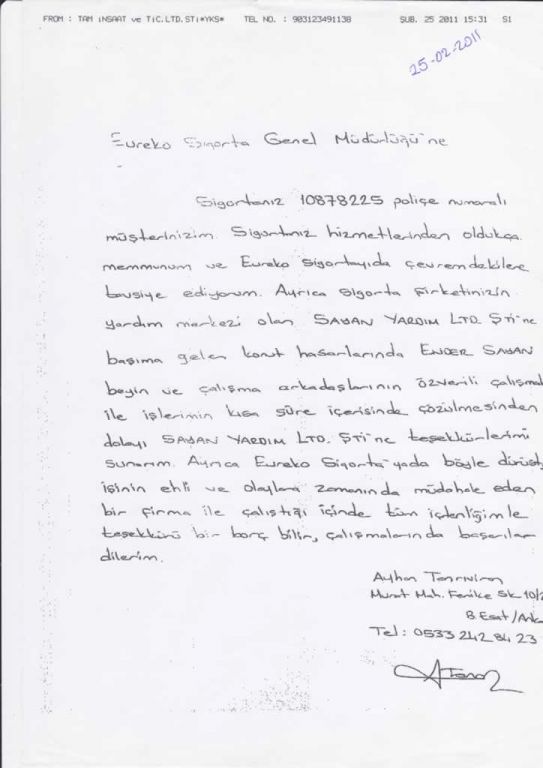 FROM : TAM iNSAAT ve TiC.LTD.STi*YKS* TEL NO. : 903123491138 SUB. 25 2011 15:31 S1
25-02-2011
Eureko Sigorta Genel Müdürlüğü'ne
Sigortanız 10878225 poliçe numaralı
müşterinizim. Sigortanız hizmetlerinden oldukça
memnunum ve Eureko Sigortayıda çevremdekilere
tavsiye ediyorum. Ayrıca sigorta şirketinizin
yardım merkezi olan SAYAN YARDIM LTD. ŞTİ'ne
başıma gelen konut hasarlarında ENDER SAYAN
beyin ve çalışma arkadaşlarının özverili çalışmal
ile işlerimin kısa süre içerisinde çözülmesinden
dolayı SAYAN YARDIM LTD. ŞTİ'ne teşekkürlerimi
sunarım. Ayrıca Eureko Sigorta'yada böyle dürüst,
işinin ehli ve olaylara zamanında müdahale eden
bir firma ile çalıştığı içinde tüm içtenliğimle
teşekkürü bir borç bilir, çalışmalarında başarılar
dilerim.
Ayhan
Murat Mah. Fenike Sk. 10/2
B.Esat/Anka
Tel: 0533 242 84 23